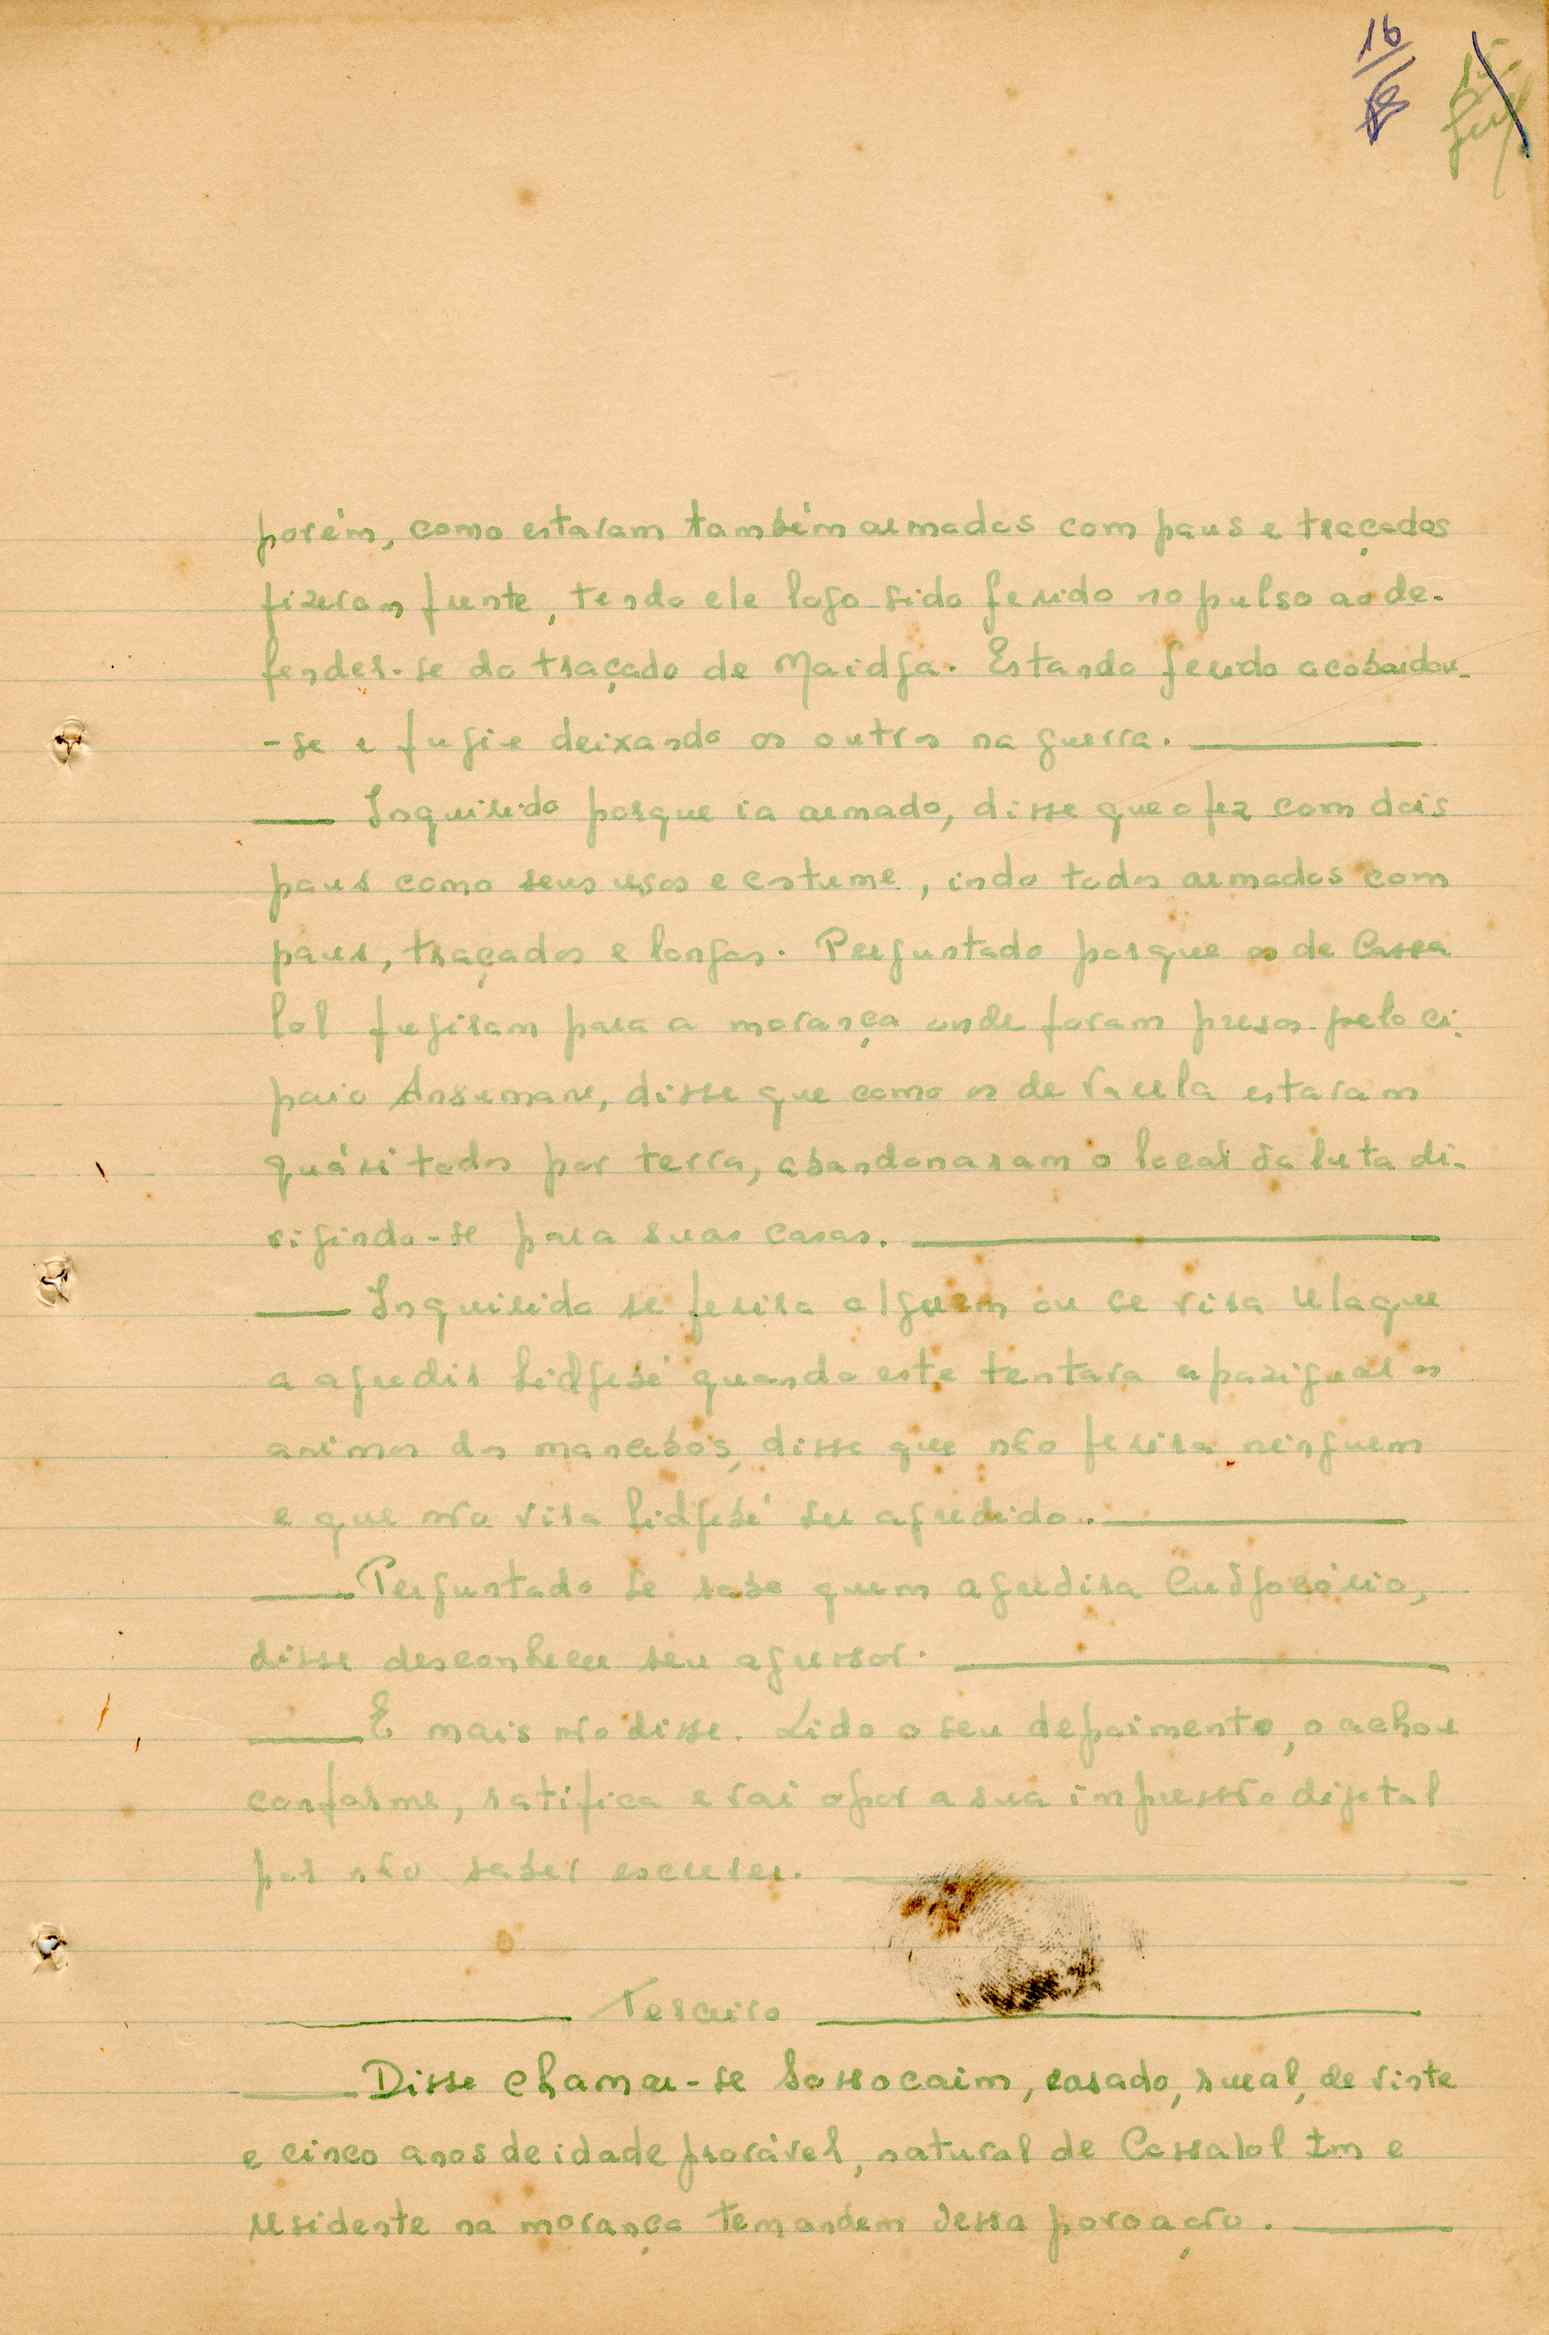 16
15
porém, como estavam também armados com paus e traçados
fizeram frente, tendo ele logo sido ferido no pulso ao de-
fender-se do traçado de Maidja. Estando ferido acobardou-
-se e fugiu deixando os outros na guerra.
Inquirido porque ia armado, disse que o fez com dois
paus como seus usos e costume, indo todos armados com
paus, traçados e longos. Perguntado porque os de Cassa
lol fugiram para a morança onde foram presos pelo ci-
paio Ansumane, disse que como os de Varela estavam
quási todos por terra, abandonaram o local da luta di-
rigindo-se para suas casas.
Inquirido se ferira alguem ou se vira Ulaque
a agredir Lidjebé quando este tentava apaziguar os
animos dos mancebos, disse que não ferira ninguem
e que não vira Lidjebé ser agredido.
Perguntado se sabe quem agredira Cudjocário,
disse desconhecer seu agressor.
E mais não disse. Lido o seu depoimento, o achou
conforme, ratifica e vai opor a sua impressão digital
por não saber escrever.
Terceiro
Disse chamar-se Sossocaim, casado, rural, de vinte
e cinco anos de idade provável, natural de Cassalol Im e
residente na morança Temandem dessa povoação.